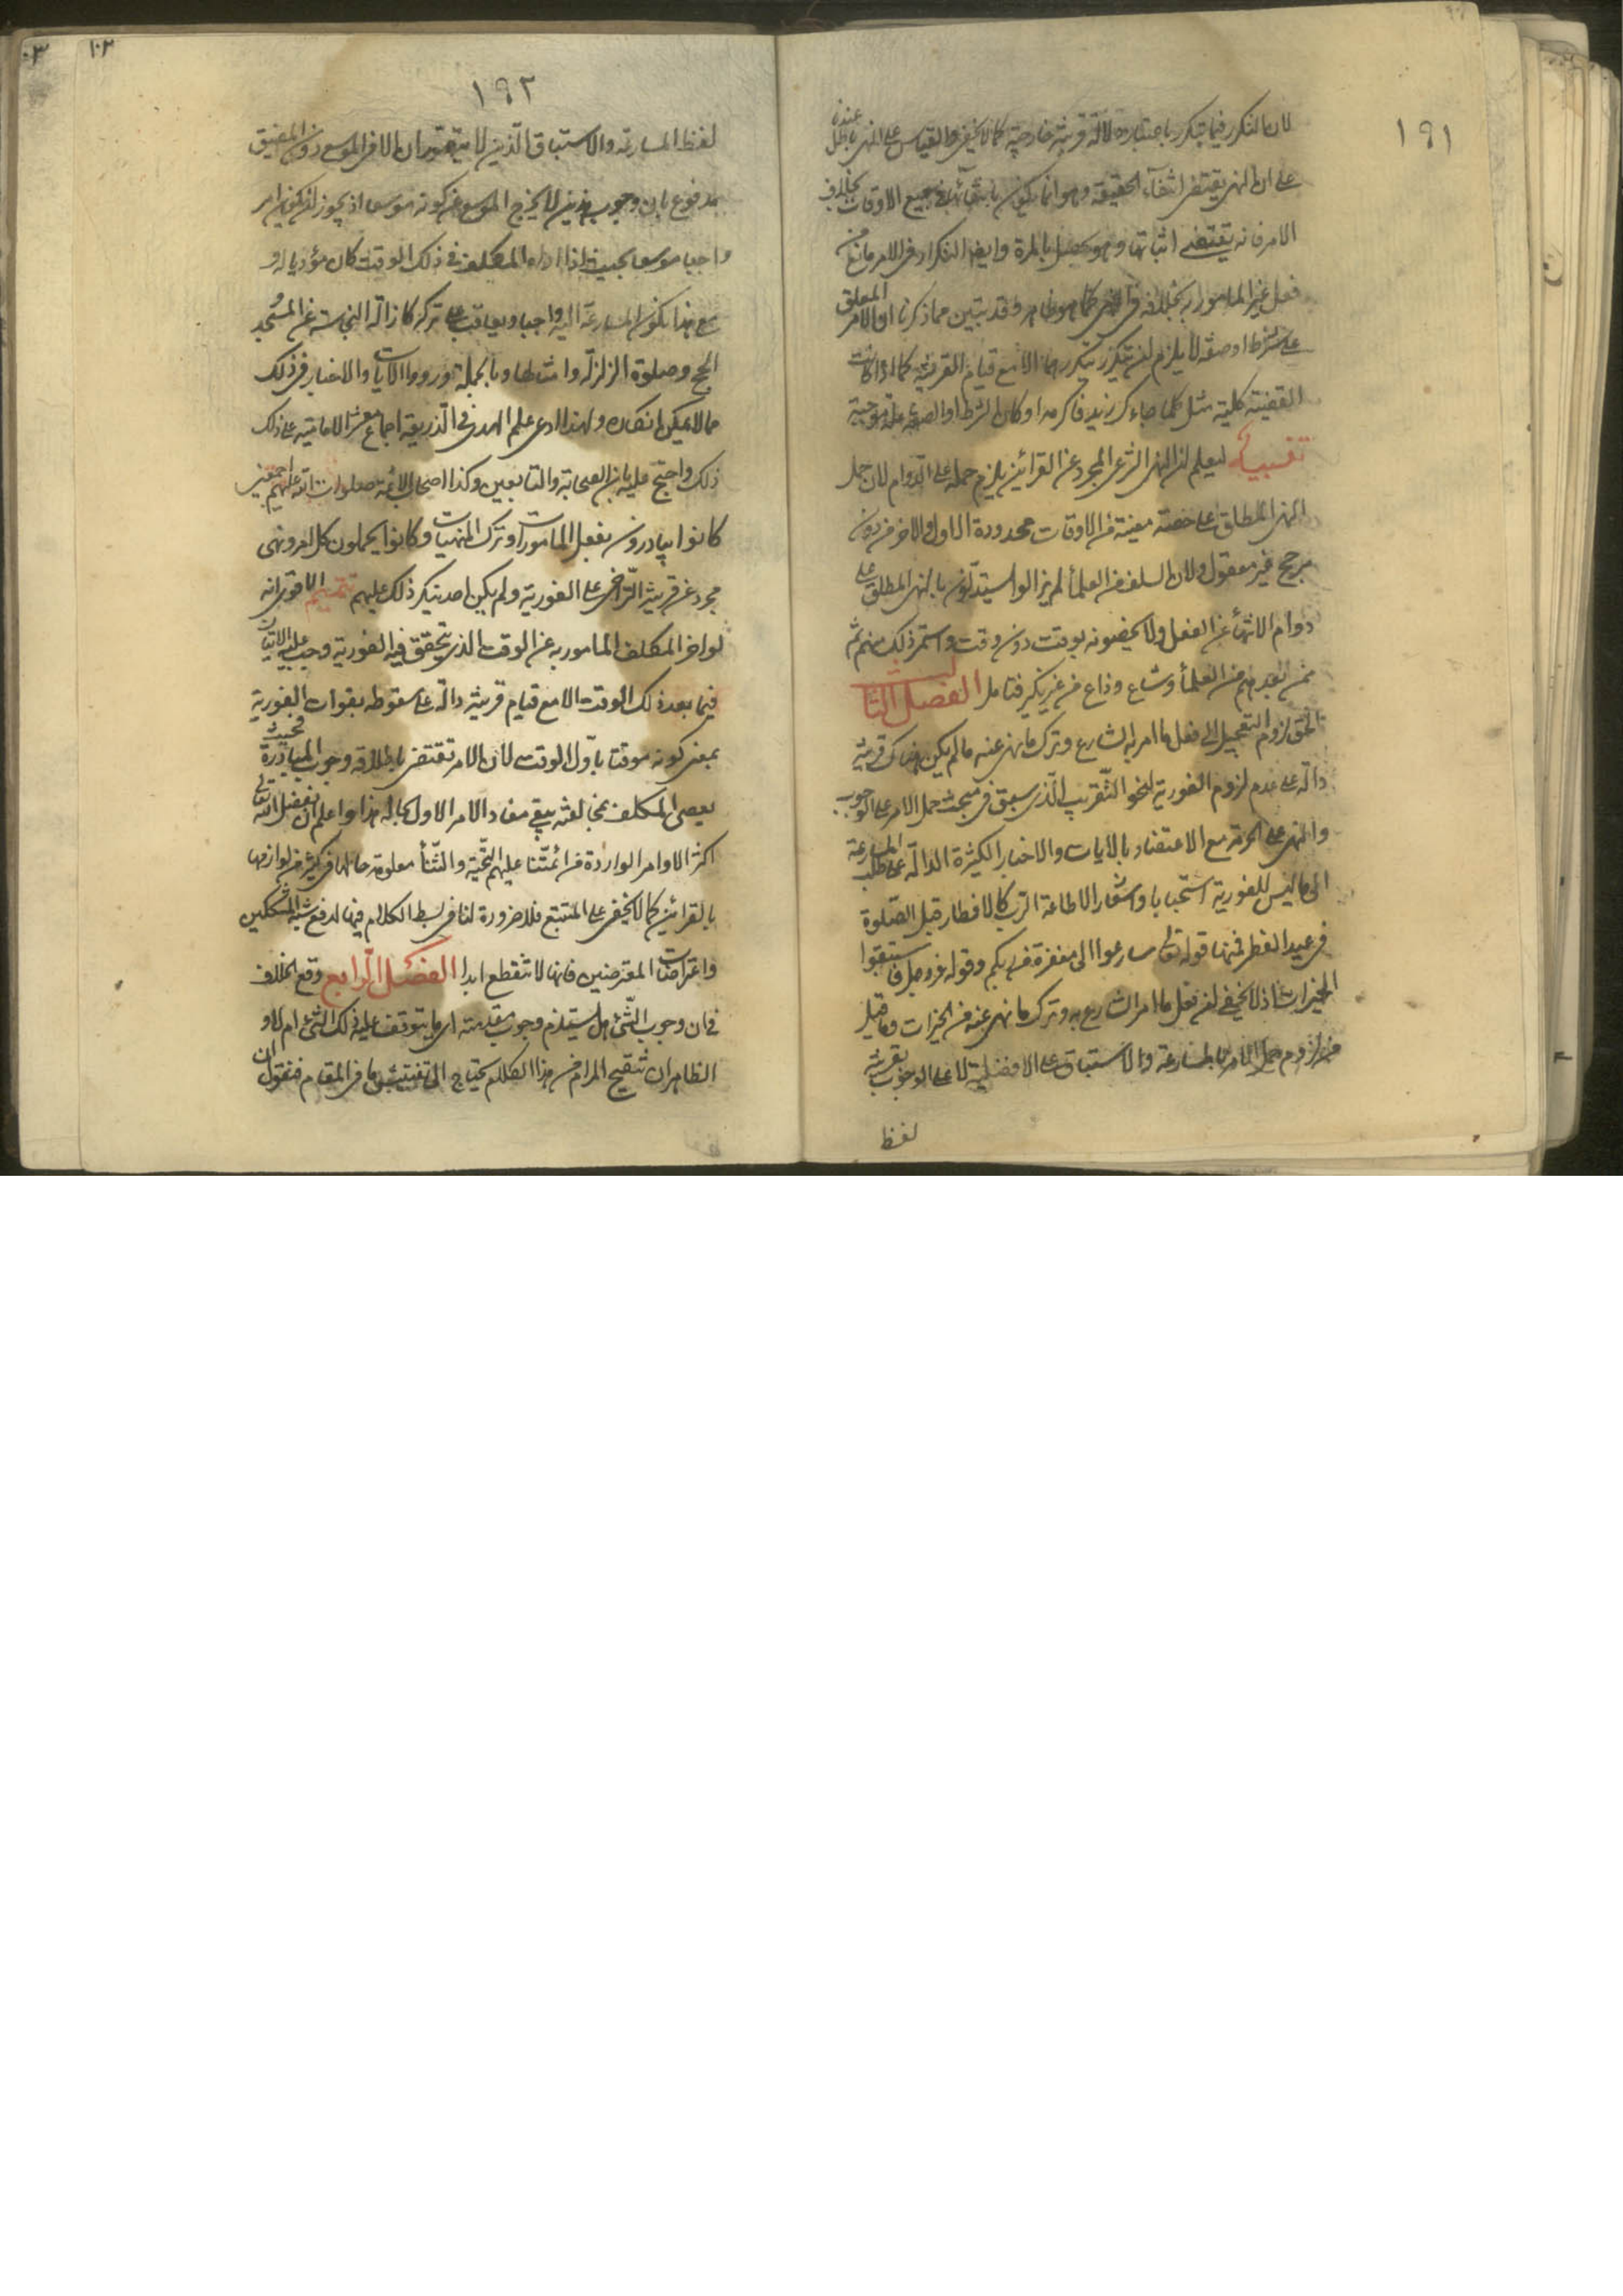 ١٩١
لان التكرر فيما يتكرر باعتبار دلالة قرينة خارجية كما لا يخفى والقياس على النهى باطل عندنا
على ان النهى يقتضى انتفاء الحقيقة وهو انما يكون بانتفائها فى جميع الاوقات بخلاف
الامر فانه يقتضى اثباتها وهو يحصل بالمرة وايضا التكرار فى الامر مانع من
فعل غير المامور به بخلافه فى النهى كما هو ظاهر وقد تبين مما ذكرنا ان الامر المعلق
على شرط او صفة لا يلزم ان يتكرر بتكررهما الا مع قيام القرينة كما اذا كانت
القضية كلية مثل كلما جاءك زيد فاكرمه او كان الشرط او الصفة علة موجبة
تنبيه ليعلم ان النهى الشرعى المجرد عن القرائن يلزم حمله على الدوام لان حمل
النهى المطلق على حصة معينة من الاوقات محدودة الاول والاخر من دون
مرجح غير معقول ولان السلف من العلماء لم يزالوا يستدلون بالنهى المطلق على
دوام الانتهاء عن الفعل ولا يخصونه بوقت دون وقت واستمر ذلك منهم ثم
ممن بعدهم من العلماء وشاع وذاع من غير نكير فتامل الفصل الثالث
الحق لزوم التعجيل الى فعل ما امر به الشارع وترك ما نهى عنه ما لم يكن هناك قرينة
دالة على عدم لزوم الفورية لنحو التقريب الذى سبق فى مبحث حمل الامر على الوجوب
والنهى على الحرمة مع الاعتضاد بالايات والاخبار الكثيرة الدالة على طلب المسارعة
الى ما ليس للفورية استحبابا واشعار الاطاعة الرب كالافطار قبل الصلوة
فى عيد الفطر فمنها قوله تعالى سارعوا الى مغفرة من ربكم وقوله عز وجل فاستبقوا
الخيرات اذ لا يخفى ان فعل ما امر الشارع به وترك ما نهى عنه من الخيرات وما قيل
من لزوم حمل الامر بالمسارعة والاستباق على الافضلية لا على الوجوب بقرينة
لفظ
١٩٢
١٠٣
لفظ المسارعة والاستباق الذين لا يتصوران الا فى الموسع دون المضيق
مدفوع بان وجوب هذين لا يخرج الموسع عن كونه موسعا اذ يجوز ان يكون امر
واجبا موسعا بحيث اذا اداه المكلف فى ذلك الوقت كان مؤديا له و
مع هذا يكون المسارعة اليه واجبا ويعاقب على تركه كازالة النجاسة عن المسجد و
الحج وصلوة الزلزلة وامثالها وبالجملة ورود الايات والاخبار فى ذلك
مما لا يمكن انكاره ولهذا ادعى علم الهدى فى الذريعة اجماع معشر الامامية على ذلك
ذلك واحتج عليه بان الصحابة والتابعين وكذا اصحاب الائمة صلوات الله عليهم اجمعين
كانوا يبادرون بفعل المامورات وترك المنهيات وكانوا يحملون كل امر ونهى
مجرد عن قرينة التراخى على الفورية ولم يكن احد ينكر ذلك عليهم تتميم الاقوى انه
لو اخر المكلف المامور به عن الوقت الذى يتحقق فيه الفورية وجب عليه الاتيان
فيما بعد ذلك الوقت الا مع قيام قرينة دالة على سقوطه بفوات الفورية
بمعنى كونه موقتا باول الوقت لان الامر تقتضى باطلاقه وجوب المبادرة فحيث
يعصى المكلف بمخالفته يبقى مفاد الامر الاول بحاله هذا واعلم ان بفضل الله تعالى
اكثر الاوامر الواردة من ائمتنا عليهم التحية والثناء معلومة حالها فى كثير من لوازمها
بالقرائن كما لا يخفى على المتتبع فلا ضرورة لنا فى بسط الكلام فيها لدفع شبه المشككين
واعتراضات المعترضين فانها لا تنقطع ابدا الفصل الرابع وقع الخلاف
فى ان وجوب الشئ هل يستلزم وجوب مقدمته اى ما يتوقف عليه ذلك الشئ ام لا و
الظاهر ان تنقيح المرام من هذا الكلام يحتاج الى تفتيش ما فى المقام فنقول ان